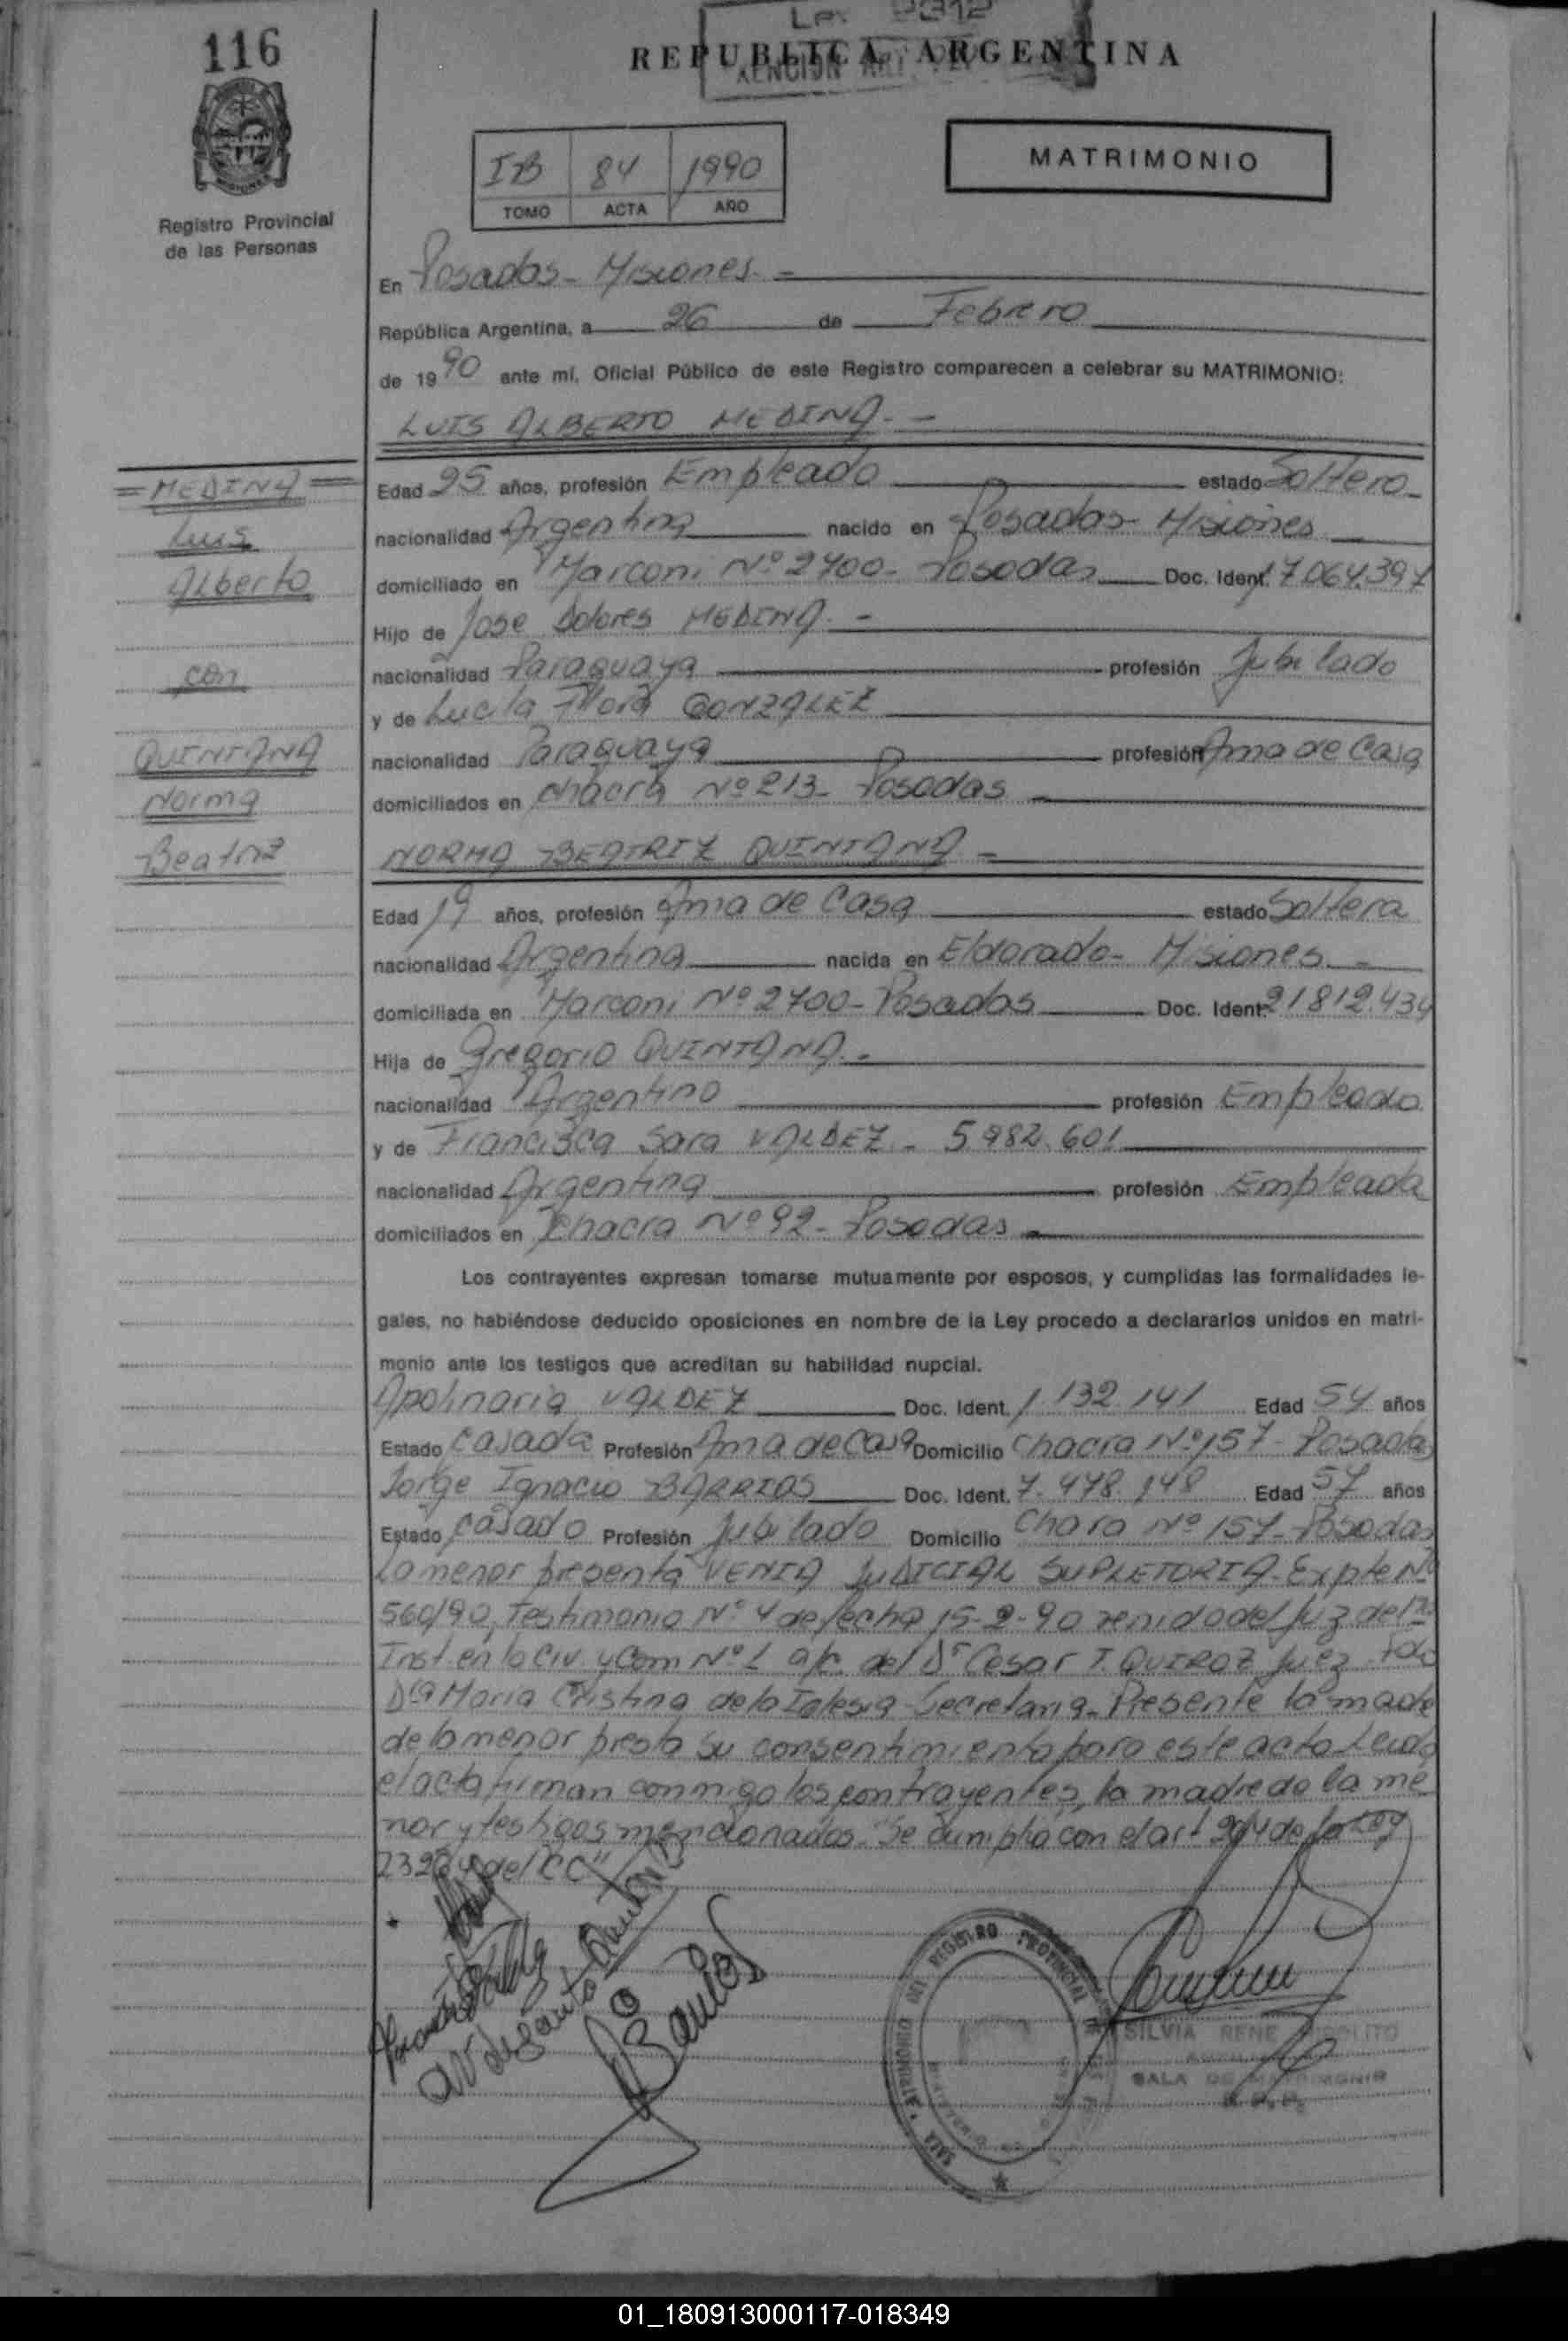 116
Ley 2312
REPUBLICA ARGENTINA
Registro Provincial
de las Personas
IB 84 1990
TOMO ACTA AÑO
MATRIMONIO
En Posadas - Misiones. -
República Argentina, a 26 de Febrero
de 1990 ante mí, Oficial Público de este Registro comparecen a celebrar su MATRIMONIO:
LUIS ALBERTO MEDINA. -
= MEDINA =
Luis
Alberto
con
QUINTANA
Norma
Beatriz
Edad 25 años, profesión Empleado estado Soltero
nacionalidad Argentina nacido en Posadas - Misiones
domiciliado en Marconi Nº 2700 - Posadas Doc. Ident. 17.064.397
Hijo de Jose Dolores MEDINA. -
nacionalidad Paraguaya profesión Jubilado
y de Lucila Flora GONZALEZ
nacionalidad Paraguaya profesión Ama de Casa
domiciliados en chacra Nº 213 - Posadas
NORMA BEATRIZ QUINTANA -
Edad 19 años, profesión Ama de Casa estado Soltera
nacionalidad Argentina nacida en Eldorado - Misiones -
domiciliada en Marconi Nº 2700 - Posadas Doc. Ident. 21812.434
Hija de Gregorio QUINTANA. -
nacionalidad Argentino profesión Empleado
y de Francisca Sara VALDEZ - 5.982.601
nacionalidad Argentina profesión Empleada
domiciliados en Chacra Nº 92 - Posadas
Los contrayentes expresan tomarse mutuamente por esposos, y cumplidas las formalidades le-
gales, no habiéndose deducido oposiciones en nombre de la Ley procedo a declararlos unidos en matri-
monio ante los testigos que acreditan su habilidad nupcial.
Apolinaria VALDEZ Doc. Ident. 1.132.141 Edad 54 años
Estado Casada Profesión Ama de Casa Domicilio Chacra Nº 157 - Posadas
Jorge Ignacio BARRIOS Doc. Ident. 7.478.148 Edad 57 años
Estado casado Profesión Jubilado Domicilio Chara Nº 157 - Posadas
La menor presenta VENIA JUDICIAL SUPLETORIA - Expte Nº
560/90, Testimonio Nº 4 de fecha 15-2-90 venido del Juz de 1ra
Inst. en lo Civ. y Com Nº 1 a/c del Dr Cesar T. QUIROZ Juez - Fdo
Dra Maria Cristina de la Iglesia - Secretaria - Presente la madre
de la menor presta su consentimiento para este acto. Leida
el acta firman conmigo los contrayentes, la madre de la me
nor y testigos mencionados. "Se cumplió con el art de la Ley
del CC"
Barrios
REGISTRO PROVINCIAL
SILVIA RENE HIPOLITO
SALA DE MATRIMONIO
01_180913000117-018349